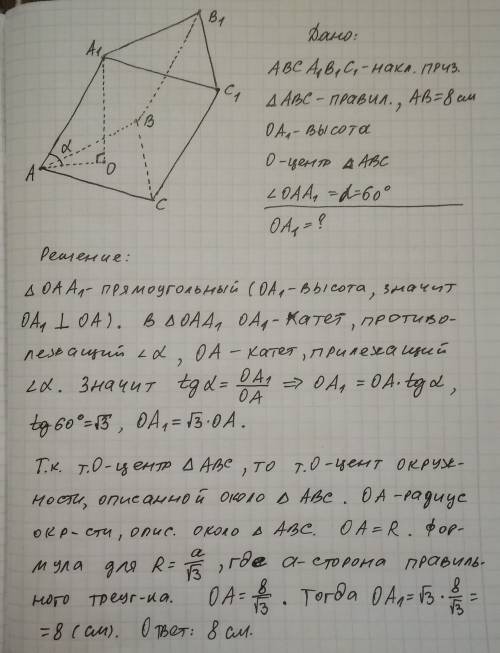 B₁
A₁
C₁
B
α
A
O
C
Дано:
ABCA₁B₁C₁-накл. приз.
△ABC-правил., AB=8 см
OA₁-высота
O-центр △ABC
∠OAA₁ =α=60°
OA₁=?
Решение:
△OAA₁- прямоугольный (OA₁-высота, значит
OA₁ ⊥ OA). В △OAA₁ OA₁-катет, противо-
лежащий ∠α, OA - катет, прилежащий
∠α. Значит tgα = OA₁/OA ⇒ OA₁ = OA·tgα,
tg60°=√3, OA₁=√3·OA.
Т.к. т.O-центр △ABC, то т.O-цент окруж-
ности, описанной около △ABC. OA-радиус
окр-сти, опис. около △ABC. OA=R. Фор-
мула для R=a/√3, где a-сторона правиль-
ного треуг-ка. OA=8/√3. Тогда OA₁=√3·8/√3=
=8 (см). Ответ: 8 см.